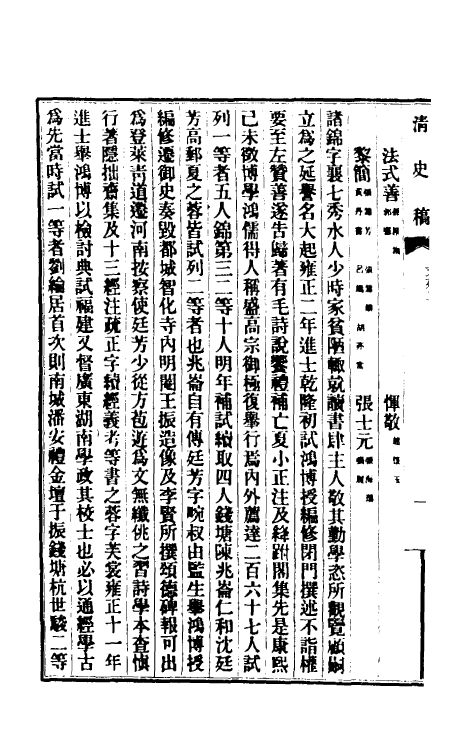 清史稿
法式善 惲敬
黎簡 張士元
諸錦字襄七秀水人少時家貧陋輒就讀書肆主人敬其勤學恣所觀覽顧嗣
立爲之延譽名大起雍正二年進士乾隆初試鴻博授編修閉門撰述不詣權
要至左贊善遂告歸著有毛詩說饗禮補亡夏小正注及絳跗閣集先是康熙
己未徵博學鴻儒得人稱盛高宗御極復舉行焉內外薦達二百六十七人試
列一等者五人錦第三二等十人明年補試續取四人錢塘陳兆崙仁和沈廷
芳高郵夏之蓉皆試列二等者也兆崙自有傳廷芳字畹叔由監生舉鴻博授
編修遷御史奏毀都城智化寺內明閹王振造像及李賢所撰頌德碑報可出
爲登萊青道遷河南按察使廷芳少從方苞遊爲文無纖佻之習詩學本查慎
行著隱拙齋集及十三經注疏正字續經義考等書之蓉字芙裳雍正十一年
進士舉鴻博以檢討典試福建又督廣東湖南學政其校士也必以通經學古
爲先當時試一等者劉綸居首次則南城潘安禮金壇于振錢塘杭世駿二等